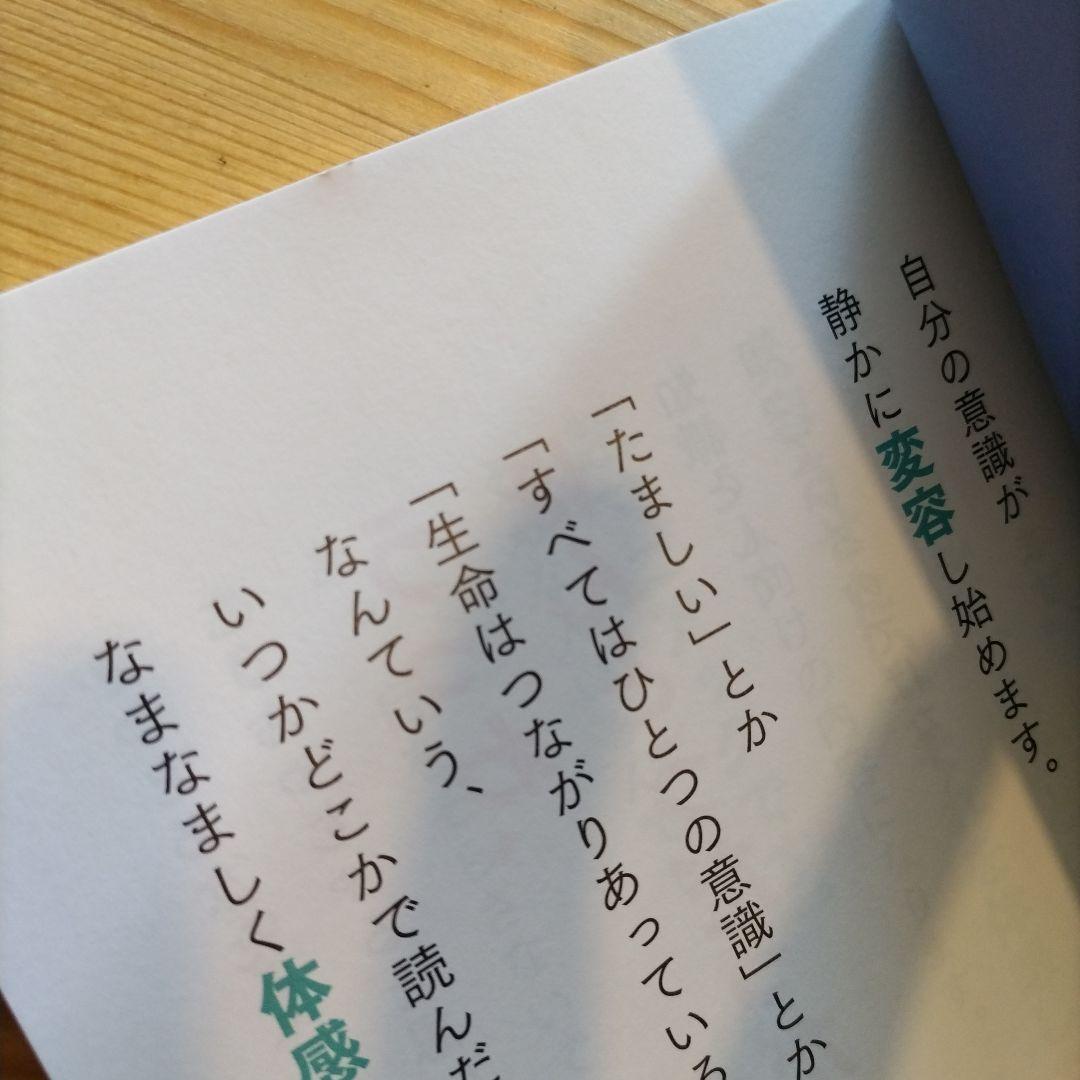 自分の意識が
静かに変容し始めます。
「たましい」とか
「すべてはひとつの意識」とか
「生命はつながりあっている
なんていう、
いつかどこかで読んだ
なまなましく体感